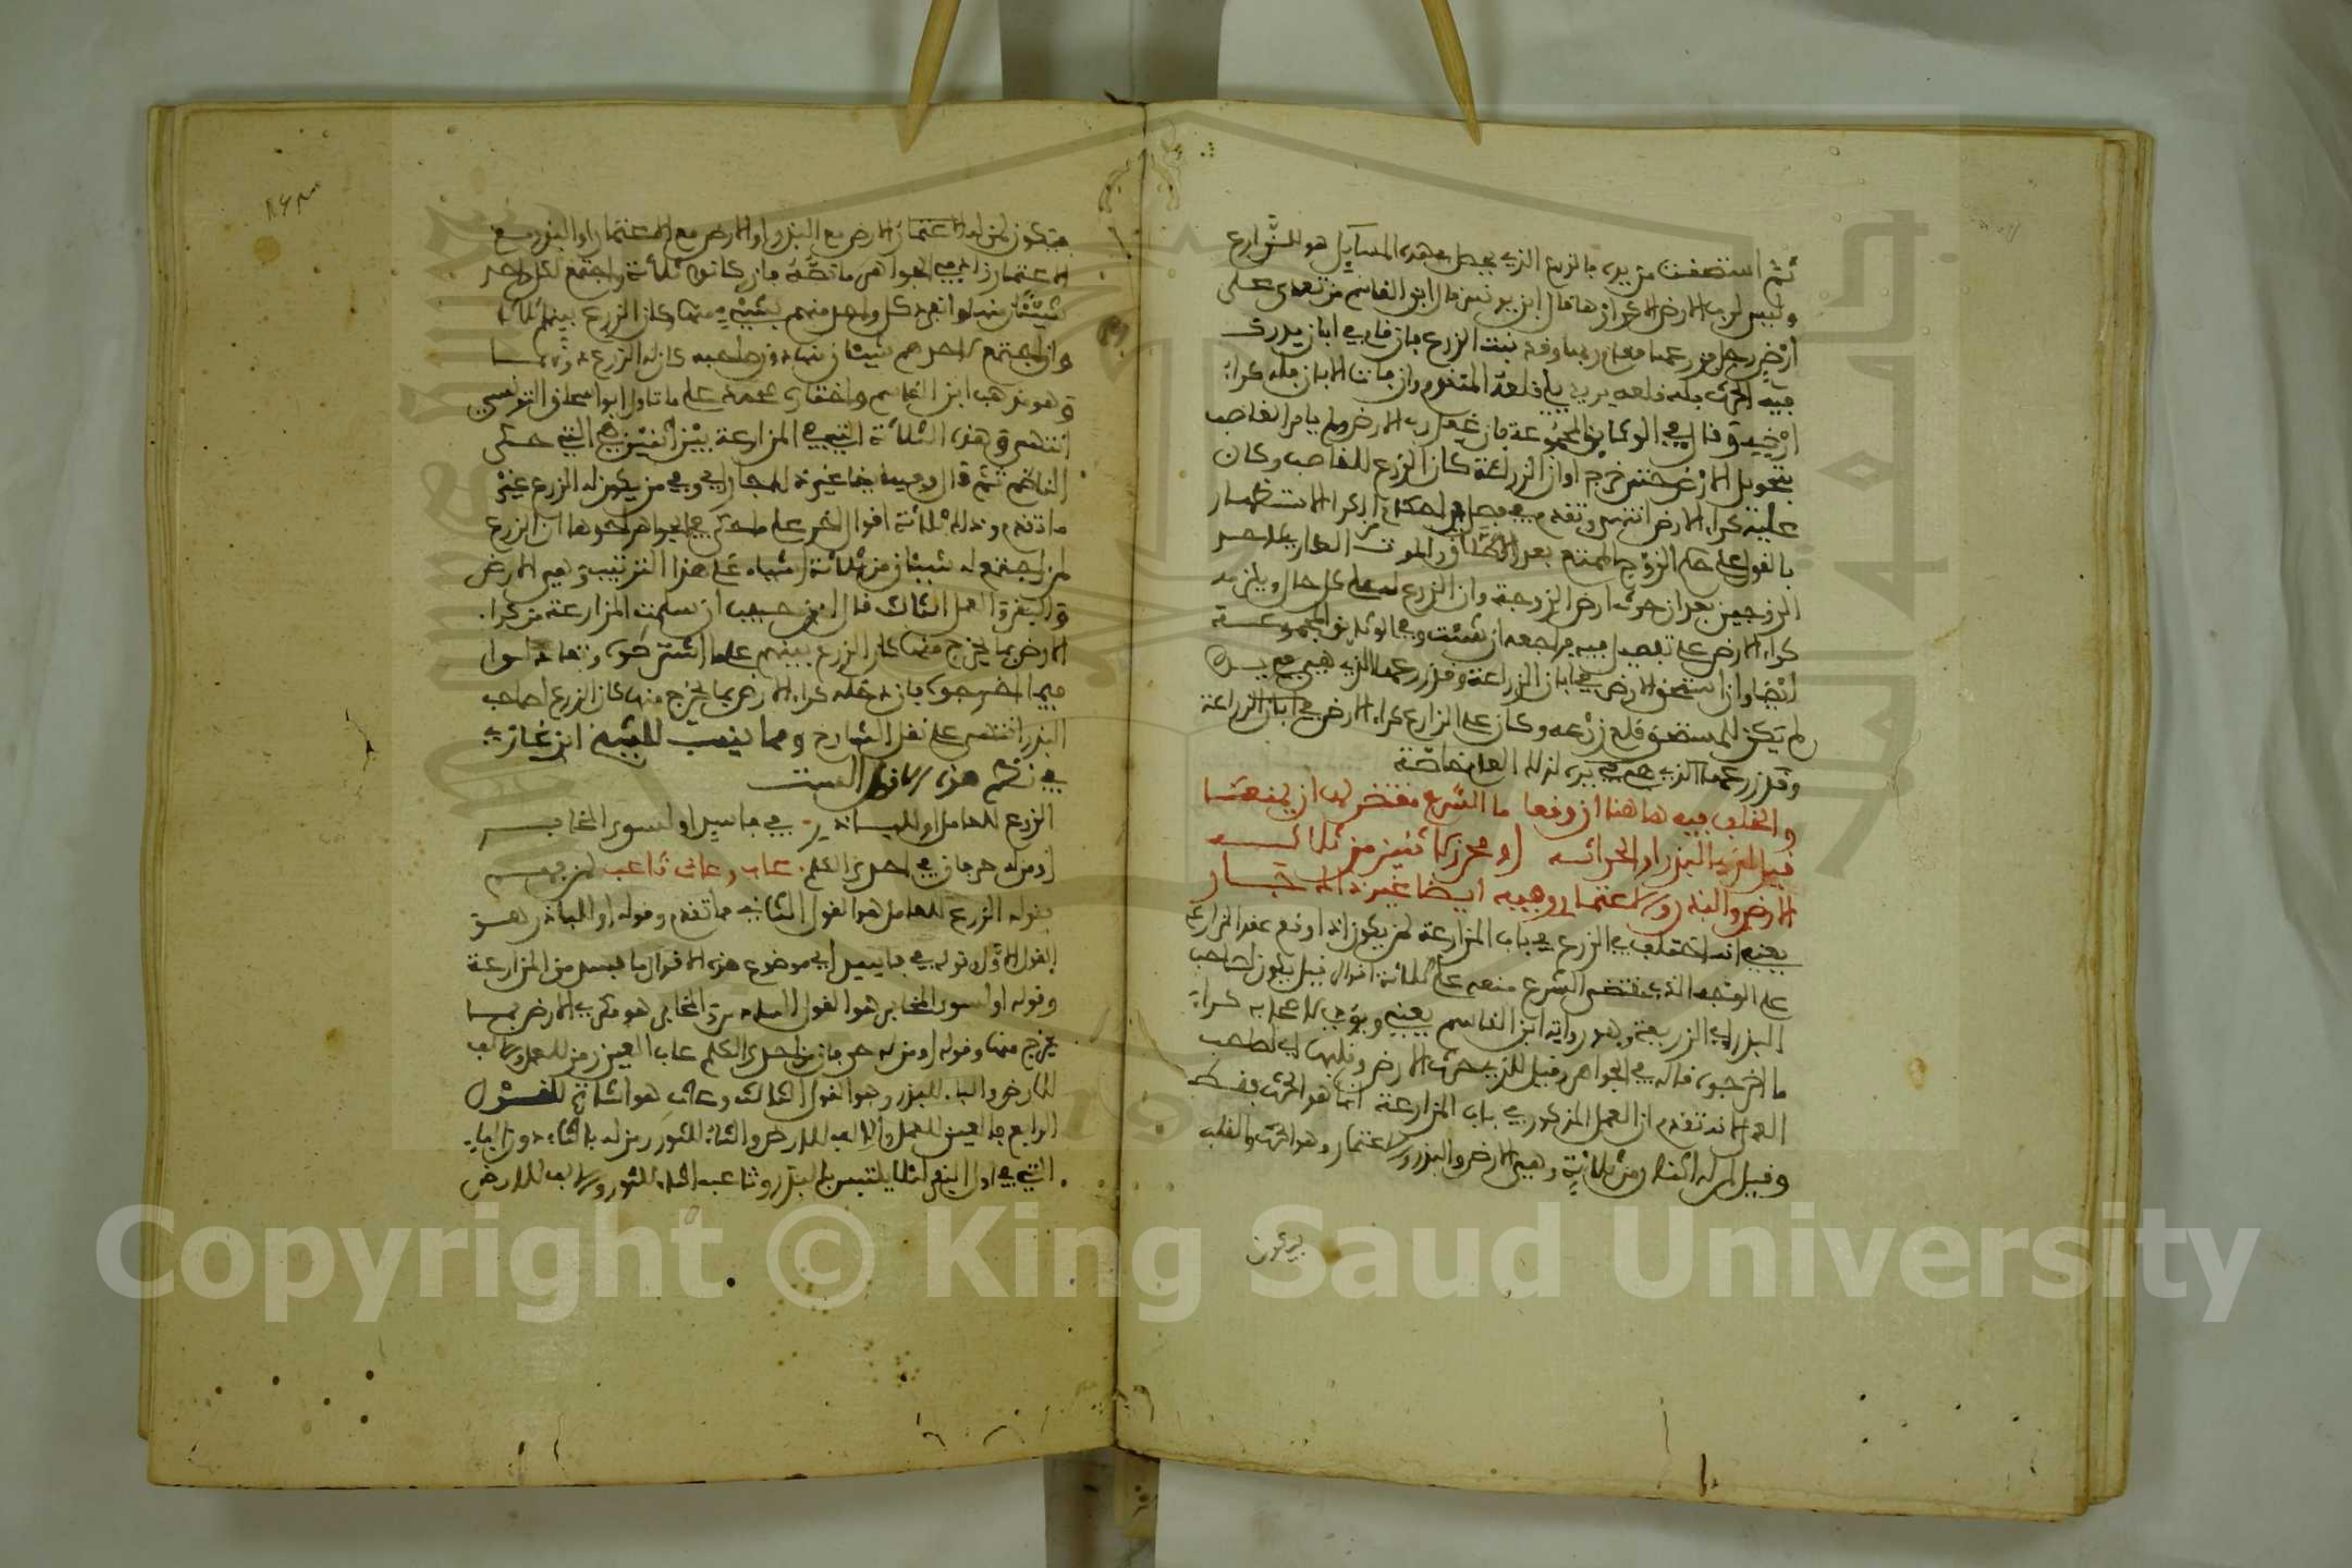 ثم استحقت من يده فالزرع الذي يحصل في هذه المسايل هو للزارع
وليس لرب الارض الا كراؤها قال ابن يونس قال ابن القاسم من تعدى على
ارض رجل فزرعها فقام ربها وقد نبت الزرع فان قام في ابان يدرك
فيه الحرث فله قلعه يريد فان فات الابان فله كراء
ارضه وقال في الوثايق المجموعة فان غفل رب الارض ولم يامر الغاصب
بتحويل الزرع حتى خرج اوان الزراعة كان الزرع للغاصب وكان
عليه كراء الارض انتهى وتقدم في فصل الكراء
بالقول على حكم الزوج بعد الموت احد
الزوجين بعد ان حرث ارض الزوجة وان الزرع له على كل حال ويلزمه
كراء الارض على تفصيل فيه فراجعه ان شئت وفي الوثايق المجموعة
ايضا وان استحق الارض في ابان الزراعة وقد زرعها الذي هي في يده
لم يكن للمستحق قلع زرعه وكان على الزارع كراء الارض في ابان الزراعة
وقد زرعها الذي هي في يده لزارعها خاصة
والخلف فيه هاهنا ان وقعا ما الشرع مقتض له ان يمنعا
قيل لذي البذر او الحراثه او محرز لاثنين من ثلاثه
الارض والبذر والاعتمار وفيه ايضا غير ذا الاختيار
يعني انه اختلف في الزرع في باب المزارعة لمن يكون اذا وقع عقد المزارعة
على الوجه الذي يقتضي الشرع منعه على ثلاثة اقوال قيل يكون لصاحب
البذر اي الزريعة وهو رواية ابن القاسم يعني ويؤدي لاصحابه كراء
ما اخرجوه قاله في الجواهر وقيل للذي حرث الارض وقلبها اي لصاحب
العمل اذ تقدم ان العمل المذكور في باب المزارعة انما هو الحرث فقط
وقيل لمن له اثنان من ثلاثة وهي الارض والبذر والاعتمار وهو الحرث والقلب
فيكون
فيكون لمن له الاعتمار الارض مع البذر او الارض مع الاعتمار او البذر مع
الاعتمار زاد في الجواهر ما نصه فان كانوا ثلاثة واجتمع لكل واحد
شيئان منها او انفرد كل واحد منهم بشيء منها كان الزرع بينهم اثلاثا
وان اجتمع لاحدهم شيئان منها دون صاحبه كان له الزرع دونهما
وهو مذهب ابن القاسم واختيار محمد على ما تاول ابو اسحاق التونسي
انتهى وهذه الثلاثة التي في المزارعة بين اثنين هي التي حكى
الناظم ثم قال وفيه ايضا غير ذا الاختيار اي وفي من يكون له الزرع غير
ما تقدم وذلك ثلاثة اقوال اخر على ما حكى في الجواهر احدها ان الزرع
لمن اجتمع له شيئان من ثلاثة اشياء على هذا الترتيب وهي الارض
والبقر والعمل الثالث قال ابن حبيب ان سلمت المزارعة من كراء
الارض بما يخرج منها كان الزرع بينهم على ما اشترطوه وتعادلوا
فيما اخرجوه فان دخله كراء الارض بما يخرج منها كان الزرع لصاحب
البذر انتهى على نقل الشارح ومما ينسب للشيخ ابن غازي
في نظم هذه الاقوال الست
الزرع للعامل او للباذر في فاسد او لسوى المخابر
او من له حرفان في احدى الكلم عاب وعاث ثاعب لمن فهم
فقوله الزرع للعامل هو القول الثاني مما تقدم وقوله او للباذر هو
القول الاول وقوله في فاسد اي موضوع هذه الاقوال ما فسد من المزارعة
وقوله او لسوى المخابر هو القول السادس المخابر هو مكري الارض بما
يخرج منها وقوله او من له حرفان من احدى الكلم عاب العين رمز للعمل والالف
للارض والباء للبذر وهو القول الثالث وعاث هو اشارة للقول
الرابع فالعين للعمل والالف للارض والثاء للثور رمز له بالثاء دون الباء
التي في اول البقر لئلا يلتبس بالبذر وثاعب الثاء للثور والالف للارض